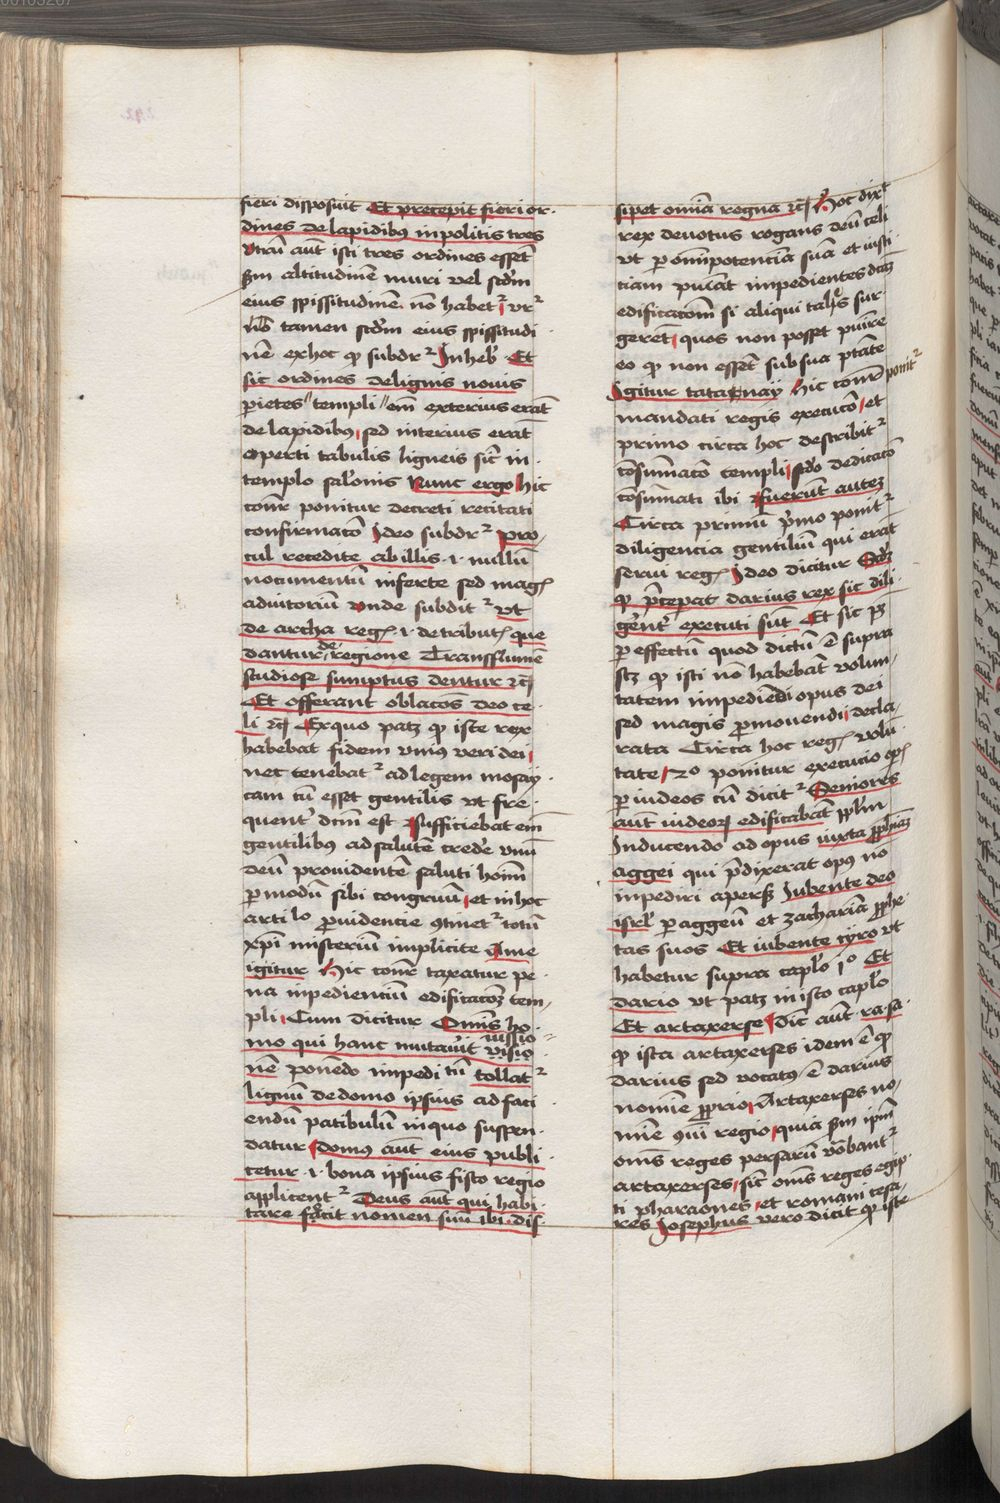 fieri disposuit Et precepit fieri or-
dines de lapidibus inpolitis tres
vtrum aut isti tres ordines essent
secundum altitudinem muri vel scdm
eius spissitudinem non habetur vr
tamen scdm eius spissitudi-
nem ex hoc quod subdr In heb Et
sic ordines de lignis nouis
parietes templi em exterius erant
de lapidibus sed interius erant
operti tabulis ligneis sicut in
templo salomonis Nunc ergo hic
ponitur decreti recitati
confirmacio Ideo subdr pro-
cul recedite ab illis .i. nullum
nocumentum inferte sed magis
adiutorium vnde subditur vt
de archa regis .i. de tributis que
dantur de regione Transflumen
studiose sumptus dentur etc
Et offerant oblacones deo ce-
li etc Ex quo patet quod iste rex
habebat fidem vnius veri dei
nec tenebatur ad legem mosay-
cam cum esset gentilis vt fre-
quenter dictum est sufficiebat enim
gentilibus ad salutem credere vnum
deum prouidentem saluti hominum
per modum sibi congruum et in hoc
articulo prouidencie continetur totum
xpi misterium implicite A me
igitur Hic taxatur pe-
na inpedientium edificacionem tem-
pli Cum dicitur Omnis ho-
mo qui hanc mutauerit iussio-
nem ponendo impedimentum tollatur
lignum de domo ipsius ad faci-
endum patibulum in quo suspen-
datur domus autem eius publi-
cetur .i. bona ipsius fisco regio
applicentur Deus autem qui habi-
tare facit nomen suum ibi dis-
sipet omnia regna etc Hoc dixit
rex deuotus rogans deum celi
vt per omnipotenciam suam et iusti-
ciam puniat impedientes dictam
edificacionem si aliqui tales sur-
gerent quos non posset punire
eo quod non essent sub sua potestate
Igitur tatannay Hic ponitur
mandati regis execucio et
primo circa hoc describitur
consummacio templi secundo dedicacio
consummati ibi fuerunt autem
Circa primum primo ponitur
diligencia gentilium qui erant
serui regis Ideo dicitur Secundum
quod preceperat darius rex sic dili-
genter executi sunt Et sic patet
per effectum quod dictum est supra
scilicet quod isti non habebant volun-
tatem impediendi opus dei
sed magis promouendi decla-
rata Circa hoc regis volun-
tate 2o ponitur execucio operis
per iudeos cum dicitur Seniores
autem iudeorum edificabant templum
Inducendo ad opus iuxta prophetiam
aggei qui predixerat opus non
inpediri a persis Iubente deo
israel per aggeum et zachariam prophe-
tas suos Et iubente cyro vt
habetur supra capitulo 1o Et
dario vt patet in isto capitulo
Et artaxerse Dicit autem ra.sa.
quod ista artaxerses idem est quod
darius sed vocatus est darius
nomine proprio Artaxerses no-
mine communi regio quia secundum ipsum
omnes reges persarum vocabantur
artaxerses sicut omnes reges egip-
ti pharaones et romani cesa-
res Iosephus vero dicit quod iste